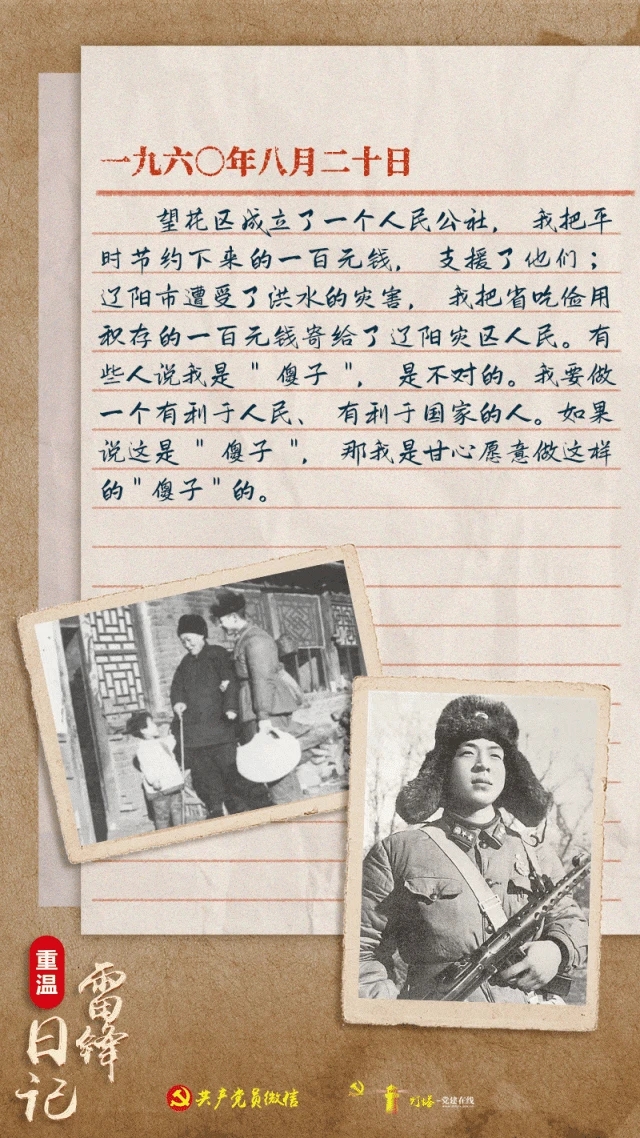 一九六〇年八月二十日
望花区成立了一个人民公社， 我把平
时节约下来的一百元钱， 支援了他们；
辽阳市遭受了洪水的灾害， 我把省吃俭用
积存的一百元钱寄给了辽阳灾区人民。有
些人说我是＂傻子＂， 是不对的。我要做
一个有利于人民、 有利于国家的人。如果
说这是＂傻子＂， 那我是甘心愿意做这样
的＂傻子＂的。
重温
雷锋
日记
共产党员微信
灯塔-党建在线